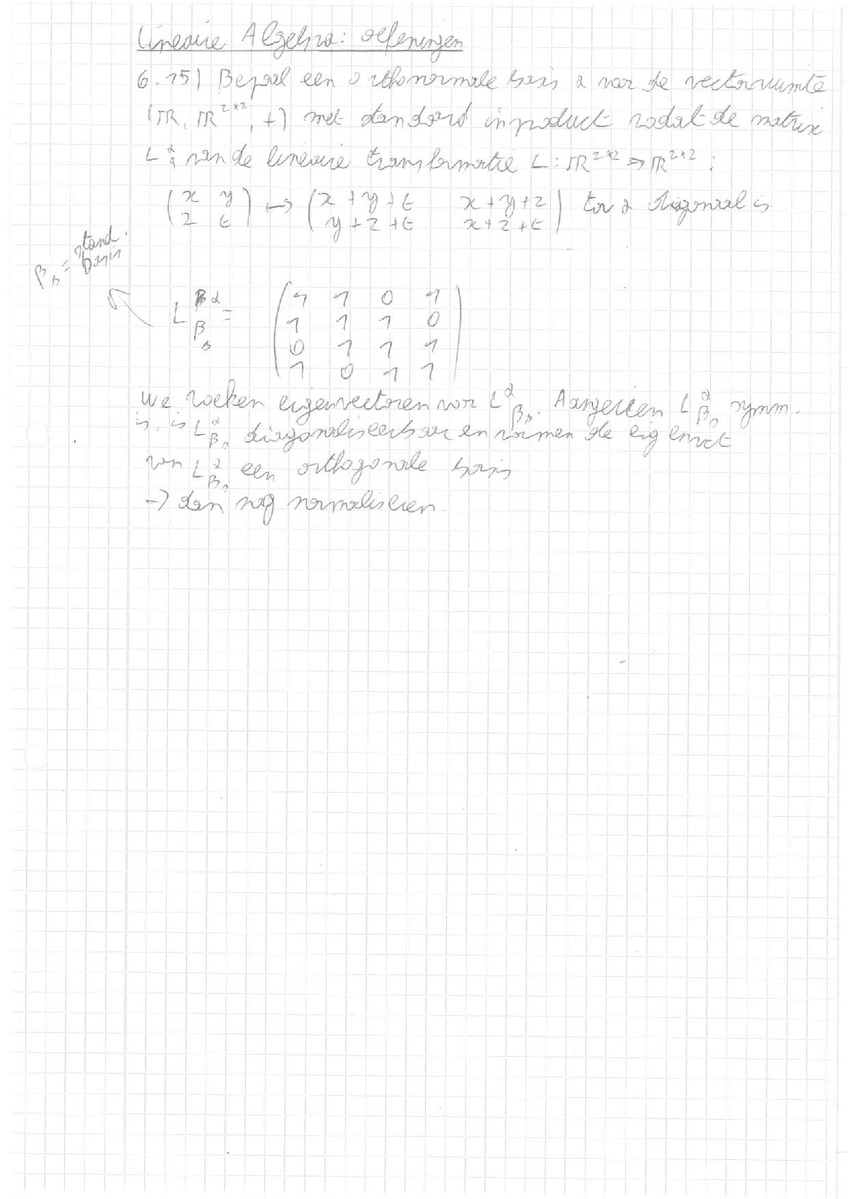 Lineaire Algebra: oefeningen
6.15) Bepaal een orthonormale basis α van de vectorruimte
(ℝ, ℝ²ˣ², +) met standaard inproduct zodat de matrix
L^α_α van de lineaire transformatie L: ℝ²ˣ² → ℝ²ˣ² :
(x y) ↦ (x+y+t x+y+z) tov α diagonaal is
(z t) (y+z+t x+z+t)
βs = stand.
basis
L^βs_βs = (1 1 0 1)
(1 1 1 0)
(0 1 1 1)
(1 0 1 1)
We zoeken eigenvectoren van L^α_βs. Aangezien L^α_βs symm.
is, is L^α_βs diagonaliseerbaar en vormen de eigenvect
van L^α_βs een orthogonale basis
→ dan nog normaliseren.